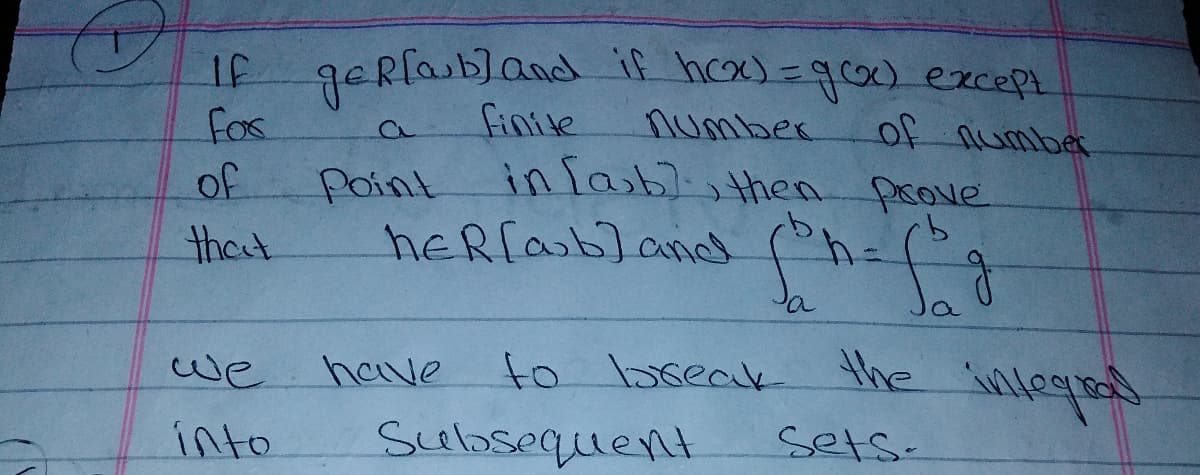 1
If g∈R[a,b] and if h(x) = g(x) except
for a finite number of number
of point in [a,b], then prove
that h∈R[a,b] and ∫ₐᵇ h = ∫ₐᵇ g
we have to break the integral
into Subsequent sets.